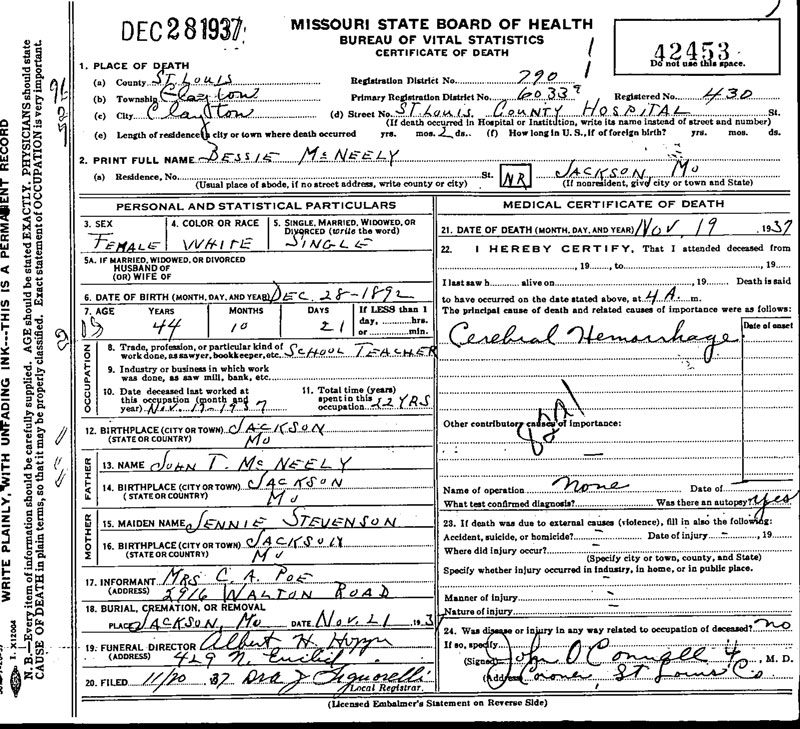 DEC 28 1937
MISSOURI STATE BOARD OF HEALTH
BUREAU OF VITAL STATISTICS
CERTIFICATE OF DEATH
42453
Do not use this space.
1. PLACE OF DEATH
(a) County St Louis Registration District No. 790
(b) Township Clayton Primary Registration District No. 6033 Registered No. 430
(c) City Clayton (d) Street No. St Louis County Hospital St.
(If death occurred in Hospital or Institution, write its name instead of street and number)
(e) Length of residence in city or town where death occurred yrs. mos. 2 ds. (f) How long in U. S., if of foreign birth? yrs. mos. ds.
2. PRINT FULL NAME BESSIE McNEELY
(a) Residence, No. St. NR JACKSON, Mo
(Usual place of abode, if no street address, write county or city) (If nonresident, give city or town and State)
PERSONAL AND STATISTICAL PARTICULARS
3. SEX FEMALE
4. COLOR OR RACE WHITE
5. SINGLE, MARRIED, WIDOWED, OR DIVORCED (write the word) SINGLE
5A. IF MARRIED, WIDOWED, OR DIVORCED
HUSBAND OF
(OR) WIFE OF
6. DATE OF BIRTH (MONTH, DAY, AND YEAR) DEC. 28-1892
7. AGE YEARS MONTHS DAYS If LESS than 1
44 10 21 day, hrs.
or min.
OCCUPATION
8. Trade, profession, or particular kind of
work done, as sawyer, bookkeeper, etc. SCHOOL TEACHER
9. Industry or business in which work
was done, as saw mill, bank, etc.
10. Date deceased last worked at
this occupation (month and
year) Nov. 17-1937
11. Total time (years)
spent in this
occupation 22 YRS
12. BIRTHPLACE (CITY OR TOWN) JACKSON
(STATE OR COUNTRY) Mo
FATHER
13. NAME JOHN T. McNEELY
14. BIRTHPLACE (CITY OR TOWN) JACKSON
(STATE OR COUNTRY) Mo
MOTHER
15. MAIDEN NAME JENNIE STEVENSON
16. BIRTHPLACE (CITY OR TOWN) JACKSON
(STATE OR COUNTRY) Mo
17. INFORMANT MRS C. A. POE
(ADDRESS) 2916 WALTON ROAD
18. BURIAL, CREMATION, OR REMOVAL
PLACE JACKSON, Mo DATE Nov. 21 1937
19. FUNERAL DIRECTOR Albert H. Hoppe
(ADDRESS) 429 N. Euclid
20. FILED 11/20 37
Local Registrar.
MEDICAL CERTIFICATE OF DEATH
21. DATE OF DEATH (MONTH, DAY, AND YEAR) Nov. 19 1937
22. I HEREBY CERTIFY, That I attended deceased from
, 19 , to , 19
I last saw h alive on , 19 Death is said
to have occurred on the date stated above, at 4 A. m.
The principal cause of death and related causes of importance were as follows:
Date of onset
Cerebral Hemorrhage
Other contributory causes of importance:
Name of operation None Date of
What test confirmed diagnosis? Was there an autopsy? yes
23. If death was due to external causes (violence), fill in also the following:
Accident, suicide, or homicide? Date of injury , 19
Where did injury occur?
(Specify city or town, county, and State)
Specify whether injury occurred in industry, in home, or in public place.
Manner of injury
Nature of injury
24. Was disease or injury in any way related to occupation of deceased? no
If so, specify
(Signed) John O'Connell , M. D.
(Address) Coroner, St Louis Co
(Licensed Embalmer's Statement on Reverse Side)
WRITE PLAINLY, WITH UNFADING INK---THIS IS A PERMANENT RECORD
N. B.—Every item of information should be carefully supplied. AGE should be stated EXACTLY. PHYSICIANS should state
CAUSE OF DEATH in plain terms, so that it may be properly classified. Exact statement of OCCUPATION is very important.